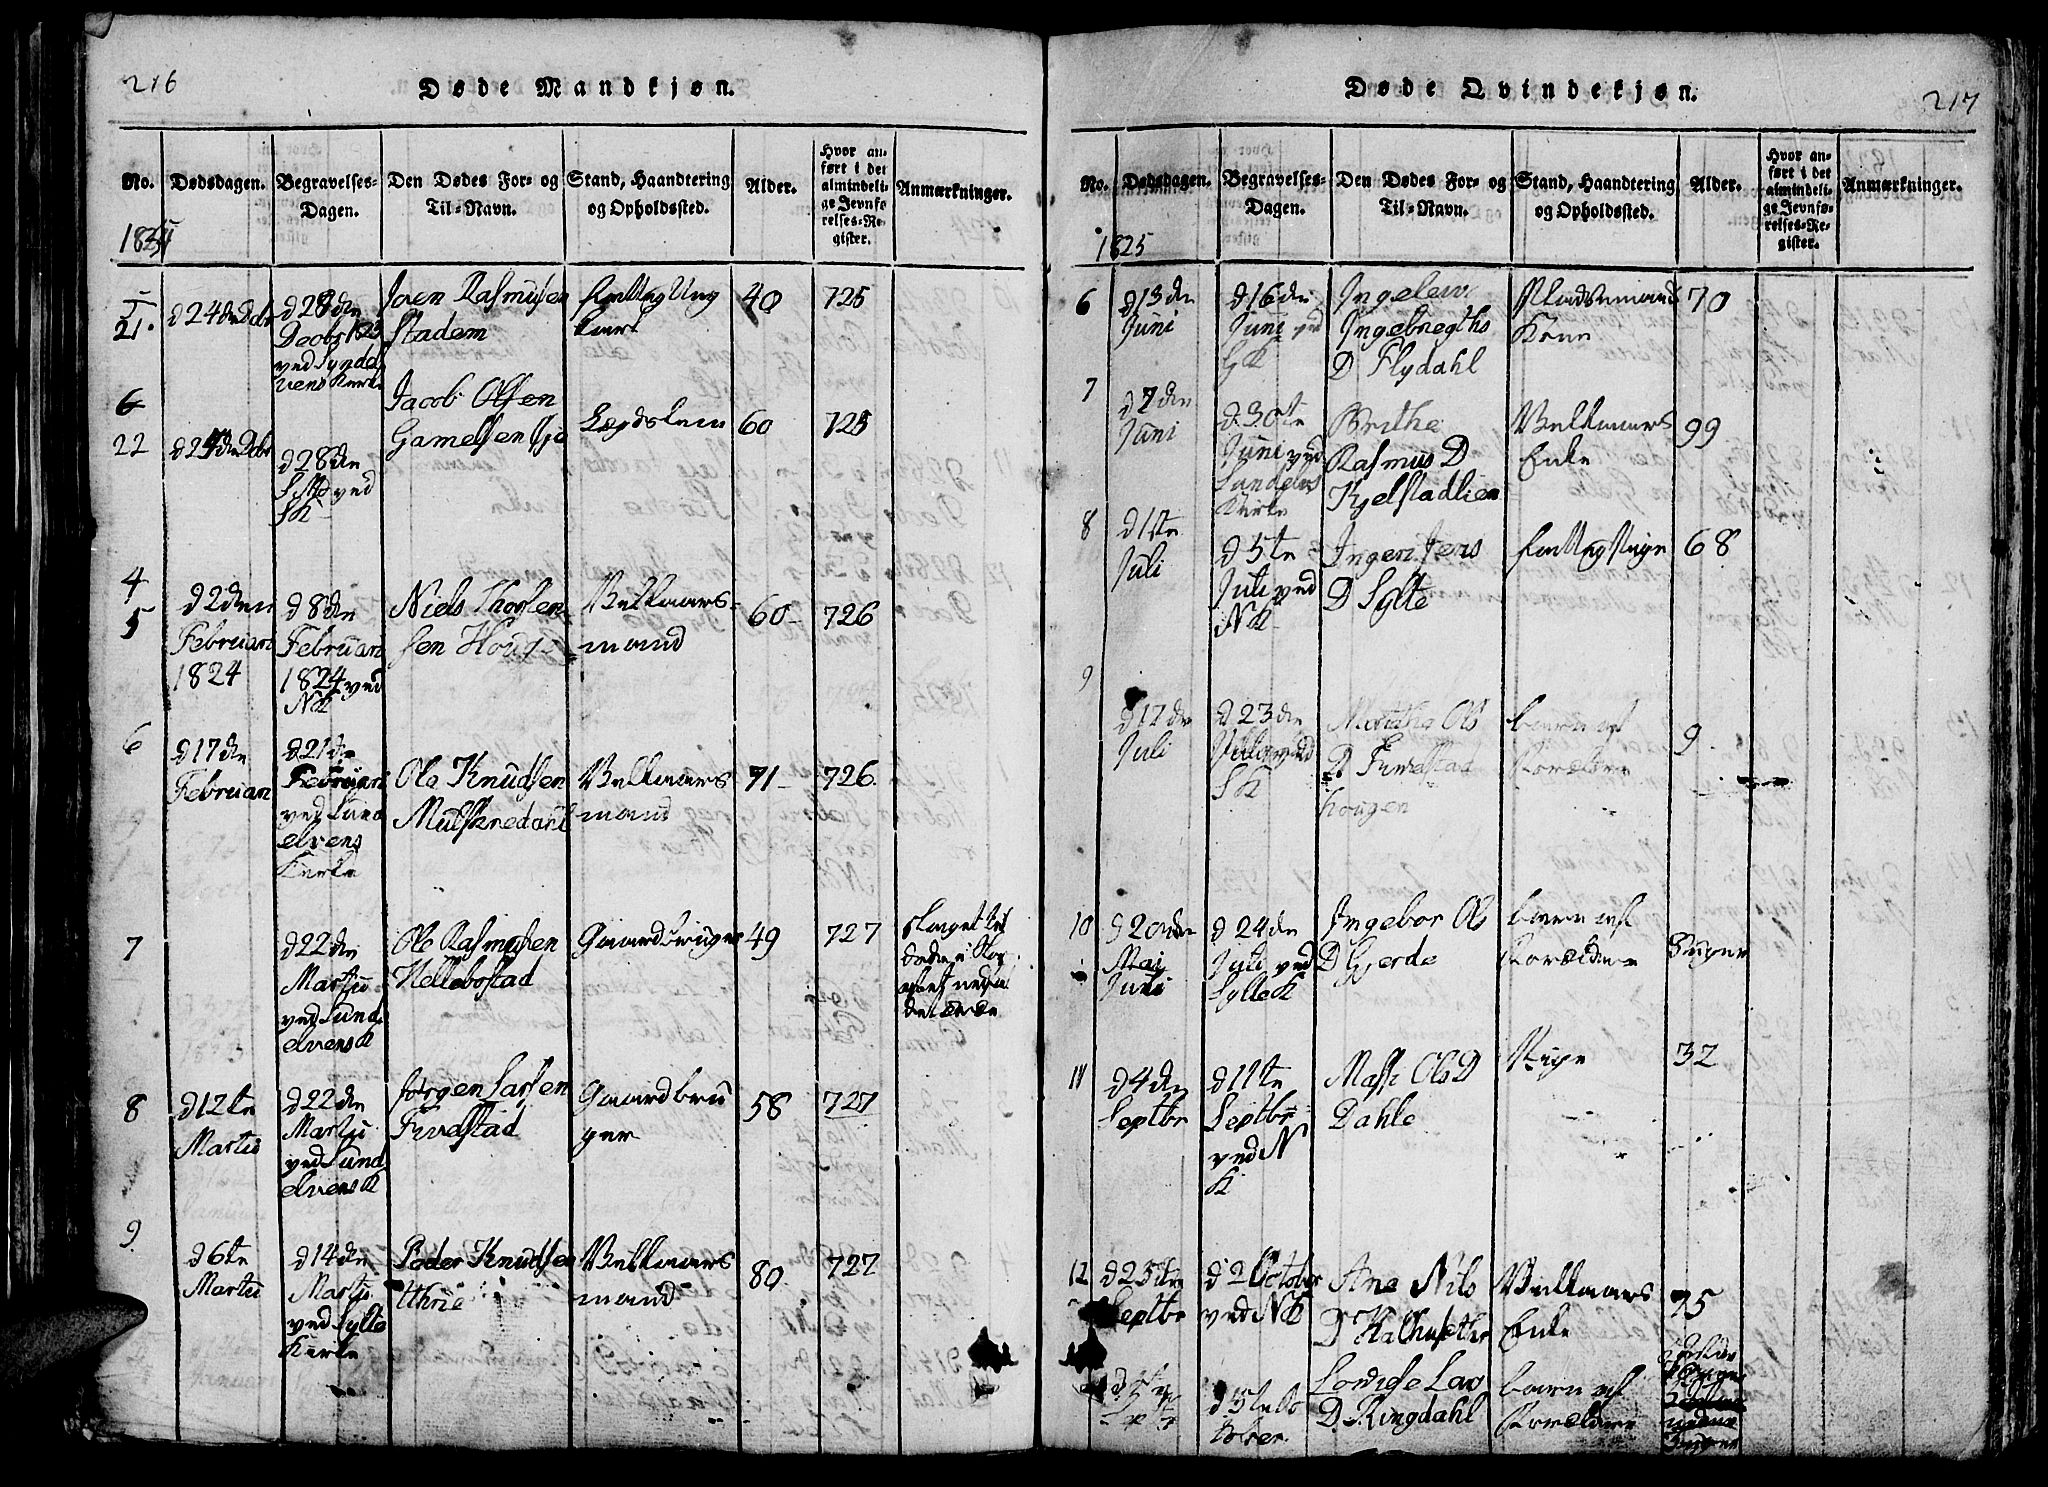 216
Døde Mandkjøn.
No.
Dødsdagen.
Begravelses-
Dagen.
Den Dødes For- og
Til-Navn.
Stand, Haandtering
og Opholdssted.
Alder.
Hvor an-
ført i det
almindeli-
ge Jevnfø-
relses-Re-
gister.
Anmærkninger.
21.
d 24de Decbr
d 28de
Decbr 1823
ved Syndel
vens Kirke
Joen Rasmusen
Stadem
Fattig Ung
karl
40
725
6
22
d28de
ved
SK
Jacob Olsen
Gamelsen
Lægdslem
60
725
4
5
d2den
Februari
1824
d8de
Februari
1824 ved
NK
Niels Thorsen
sen Houg
Velkaars-
mand
60
726
6
d17de
Februari
d21de
Februari
ved Sund
elvens
Kirke
Ole Knudsen
Mulskredahl
Velkaars
mand
71
726.
7
d22de
Martii
ved Sund
elvens K
Ole Rasmusen
Hellebostad
Gaardbruger
49
727
slaget til
døde i Sko
8
d12te
Martii
d22de
Martii
ved Sund
elvens K
Jørgen Larsen
Furstad
Gaardbru
ger
58
727
9.
d6te
Martii
d14de
Martii
ved Sylte
Kirke
Peder Knudsen
Uthrie
Velkaars
mand
80
727
217
Døde Qvindekjøn.
No.
Dødsdagen.
Begravelses-
Dagen.
Den Dødes For- og
Til-Navn.
Stand, Haandtering
og Opholdssted.
Alder.
Hvor an-
ført i det
almindeli-
ge Jevnfø-
relses-Re-
gister.
Anmærkninger.
1825
6
d13de
Juni
d16de
Juni ved
SK
Ingelev
Ingebregths
D Flydahl
Pladsmands
Kone
70
7
d7de
Juni
d30te
Juni ved
Sundelvs
Kirke
Brithe
Rasmus D
Kjelstadlien
Velkaars
Enke
99
8
d1ste
Juli
d5te
Juli ved
NK
Ingeri Jens
D Sylte
Fattig Pige
68
9
d17de
Juli
d23de
Juli ved
SK
Marthe Ols
D Furstad
hougen
barn af
Forældre
9.
10
d20de
Mai
Juni
d24de
Juli ved
Sylte K
Ingebor Ols
D Gjerde
barn af
Forældre
3uger
11
d4de
Septbr
d11te
Septbr
ved N
K
Massi Ols D
Dahle
Pige
32
12
d25de
Septbr
d2October
ved NK
Ane Nils
D Kalhusetter
Velkaars
Enke
75
d5te
tober.
Lovise Lars
D. Ringdahl
barn af
Forældre